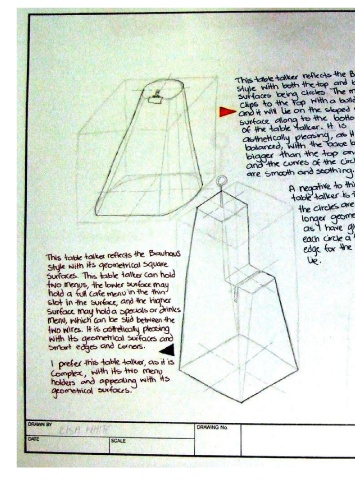 This table talker reflects the B
style with both the top and b
surfaces being circles. The m
clips to the top with a build
and it will lie on the sloped s
surface along to the bottom
of the table talker. It is
asthetically pleasing, as it
balanced, with the base b
bigger than the top an
and the curves of the circ
are smooth and soothing.
A negative to thi
table talker is t
the circles are
longer geome
as I have g
each circle a
edge for the
lie.
This table talker reflects the Bauhaus
style with its geometrical square
surfaces. This table talker can hold
two menus, the lower surface may
hold a full cafe menu in the thin
slot in the surface, and the higher
surface may hold a specials or drinks
menu, which can be slid between the
two wires. It is asthetically pleasing
with its geometrical surfaces and
smart edges and corners.
I prefer this table talker, as it is
complex, with its two menu
holders and appealing with its
geometrical surfaces.
DRAWN BY
DRAWING No.
DATE
SCALE